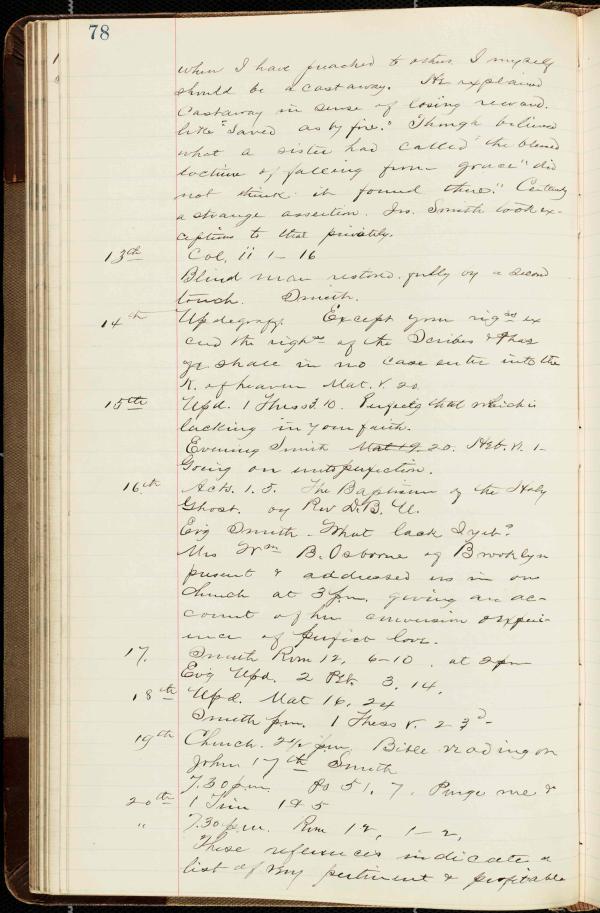 78
when I have preached to others I myself
should be a castaway. He explained
Castaway in sense of losing reward.
like "Saved as by fire." Though believed
what a sister had called "the blessed
doctrine of falling from grace" did
not think it found there." Certainly
a strange assertion. Jno. Smith took ex-
ceptions to that privately.
13th Col, ii 1-16
Blind man restored fully by a second
touch. Smith.
14th Updegraff. Except your rigss ex
ceed the righss of the Scribes & Phar
ye shall in no case enter into the
K. of heaven Mat. V. 20
15th Upd. 1 Thess 3.10. Perfecting that which is
lacking in your faith.
Evening Smith Mat 19. 20. Heb. VI. 1-
Going on unto perfection.
16th Acts. 1. 5. The Baptism of the Holy
Ghost. by Rev D.B. U.
Ev'g Smith - What lack I yet?
Mrs Wm B. Osborne of Brooklyn
present & addressed us in our
church at 3 p.m. giving an ac-
count of her conversion & experi-
ence of perfect love.
17. Smith Rom 12, 6-10. at 2 pm
Ev'g Upd. 2 Pet. 3. 14.
18th Upd. Mat 16. 24
Smith p.m. 1 Thess V. 23d-
19th Church. 2½ p.m. Bible reading on
John 17th Smith
7.30 p.m. Ps 51, 7. Purge me &
20th 1 Tim 1 & 5
" 7.30 p.m. Rom 12, 1-2,
These references indicate a
list of very pertinent & profitable